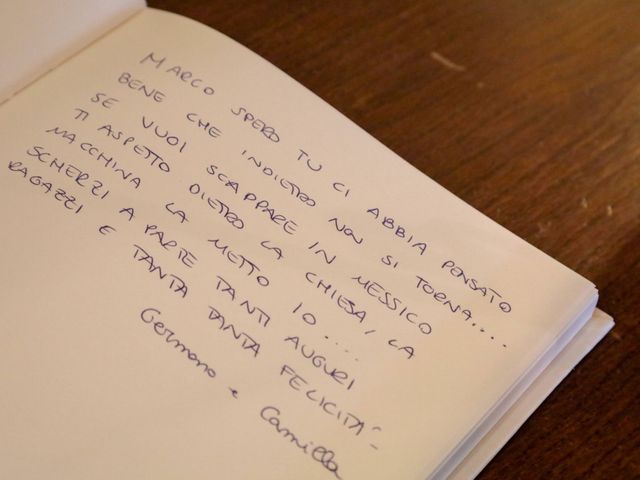 MARCO SPERO TU CI ABBIA PENSATO
BENE CHE INDIETRO NON SI TORNA....
SE VUOI SCAPPARE IN MESSICO
TI ASPETTO DIETRO LA CHIESA, LA
MACCHINA LA METTO IO....
SCHERZI A PARTE TANTI AUGURI
RAGAZZI E TANTA TANTA FELICITÀ -
Germano e Camilla